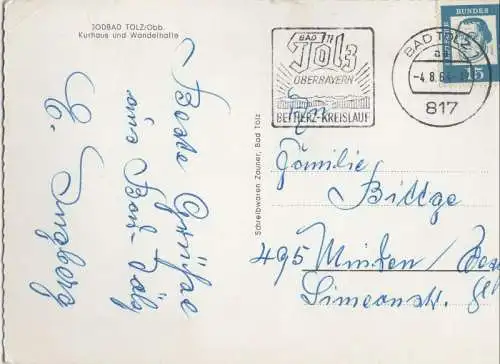 JODBAD TÖLZ/Obb.
Kurhaus und Wandelhalle
Beste Grüße
aus Bad-Tölz
Ingeborg
Schreibwaren Zauner, Bad Tölz
BAD
Tölz
OBERBAYERN
BEI HERZ-KREISLAUF
BAD TÖLZ 1
-4.8.64
817
BUNDES
15
An
Familie
Bittge
495 Minden
Simeonstr.